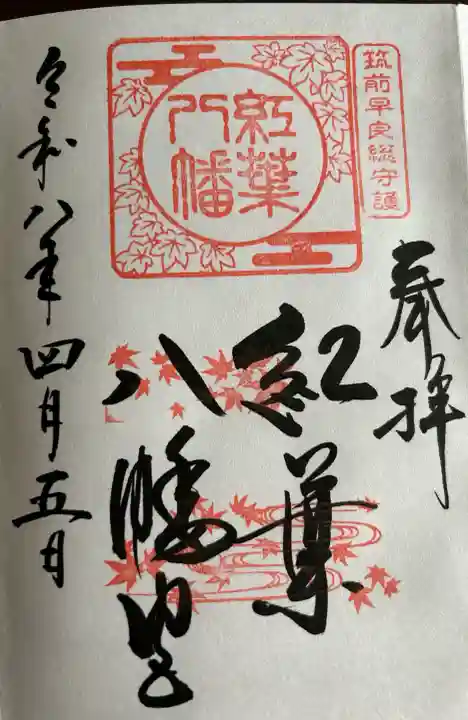 筑前早良総守護
奉拝
紅葉
八幡
紅葉
八幡宮
令和八年四月五日